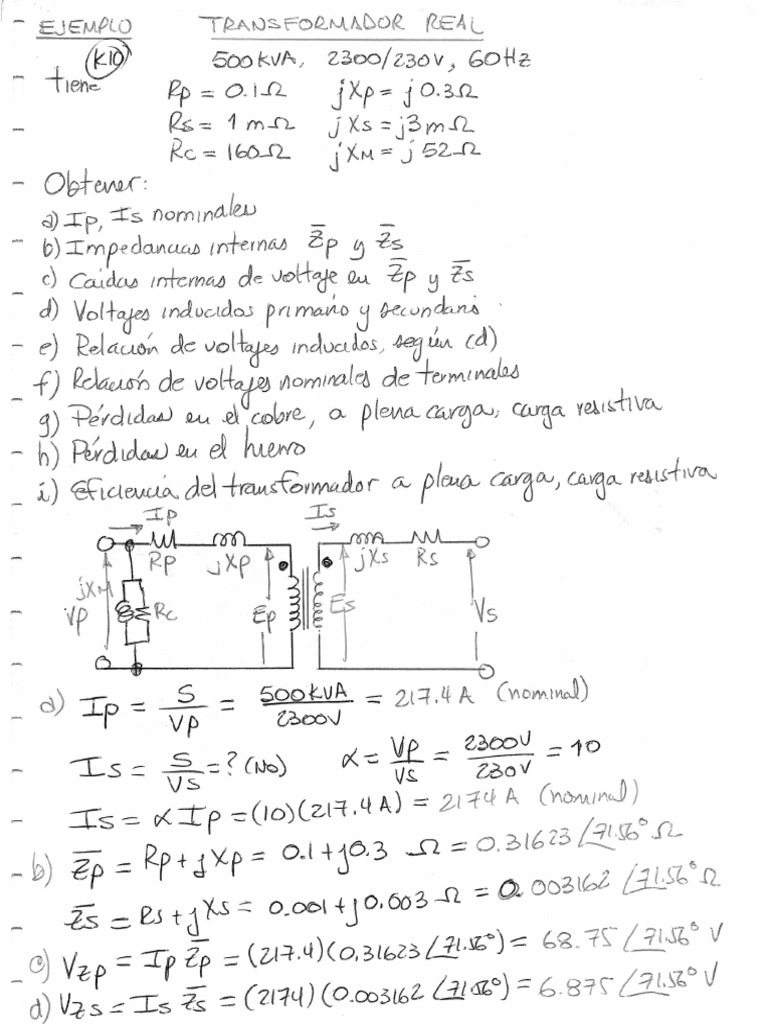 EJEMPLO TRANSFORMADOR REAL
K10 500KVA, 2300/230V, 60Hz
tiene Rp = 0.1Ω jXp = j0.3Ω
Rs = 1mΩ jXs = j3mΩ
Rc = 160Ω jXM = j52Ω
Obtener:
a) Ip, Is nominales
b) Impedancias internas Z̄p y Z̄s
c) Caidas internas de voltaje en Z̄p y Z̄s
d) Voltajes inducidos primario y secundario.
e) Relación de voltajes inducidos, según (d)
f) Relación de voltajes nominales de terminales
g) Pérdidas en el cobre, a plena carga, carga resistiva
h) Pérdidas en el hierro
i) Eficiencia del transformador a plena carga, carga resistiva
Ip Is
Rp jXp jXs Rs
jXM
Vp Rc Ep Es Vs
a) Ip = S/Vp = 500KVA/2300V = 217.4 A (nominal)
Is = S/Vs = ? (No) α = Vp/Vs = 2300V/230V = 10
Is = αIp = (10)(217.4A) = 2174 A (nominal)
b) Z̄p = Rp+jXp = 0.1+j0.3 Ω = 0.31623 /71.56° Ω
Z̄s = Rs+jXs = 0.001+j0.003 Ω = 0.003162 /71.56° Ω
c) Vzp = Ip Z̄p = (217.4)(0.31623 /71.56°) = 68.75 /71.56° V
d) Vzs = Is Z̄s = (2174)(0.003162 /71.56°) = 6.875 /71.56° V